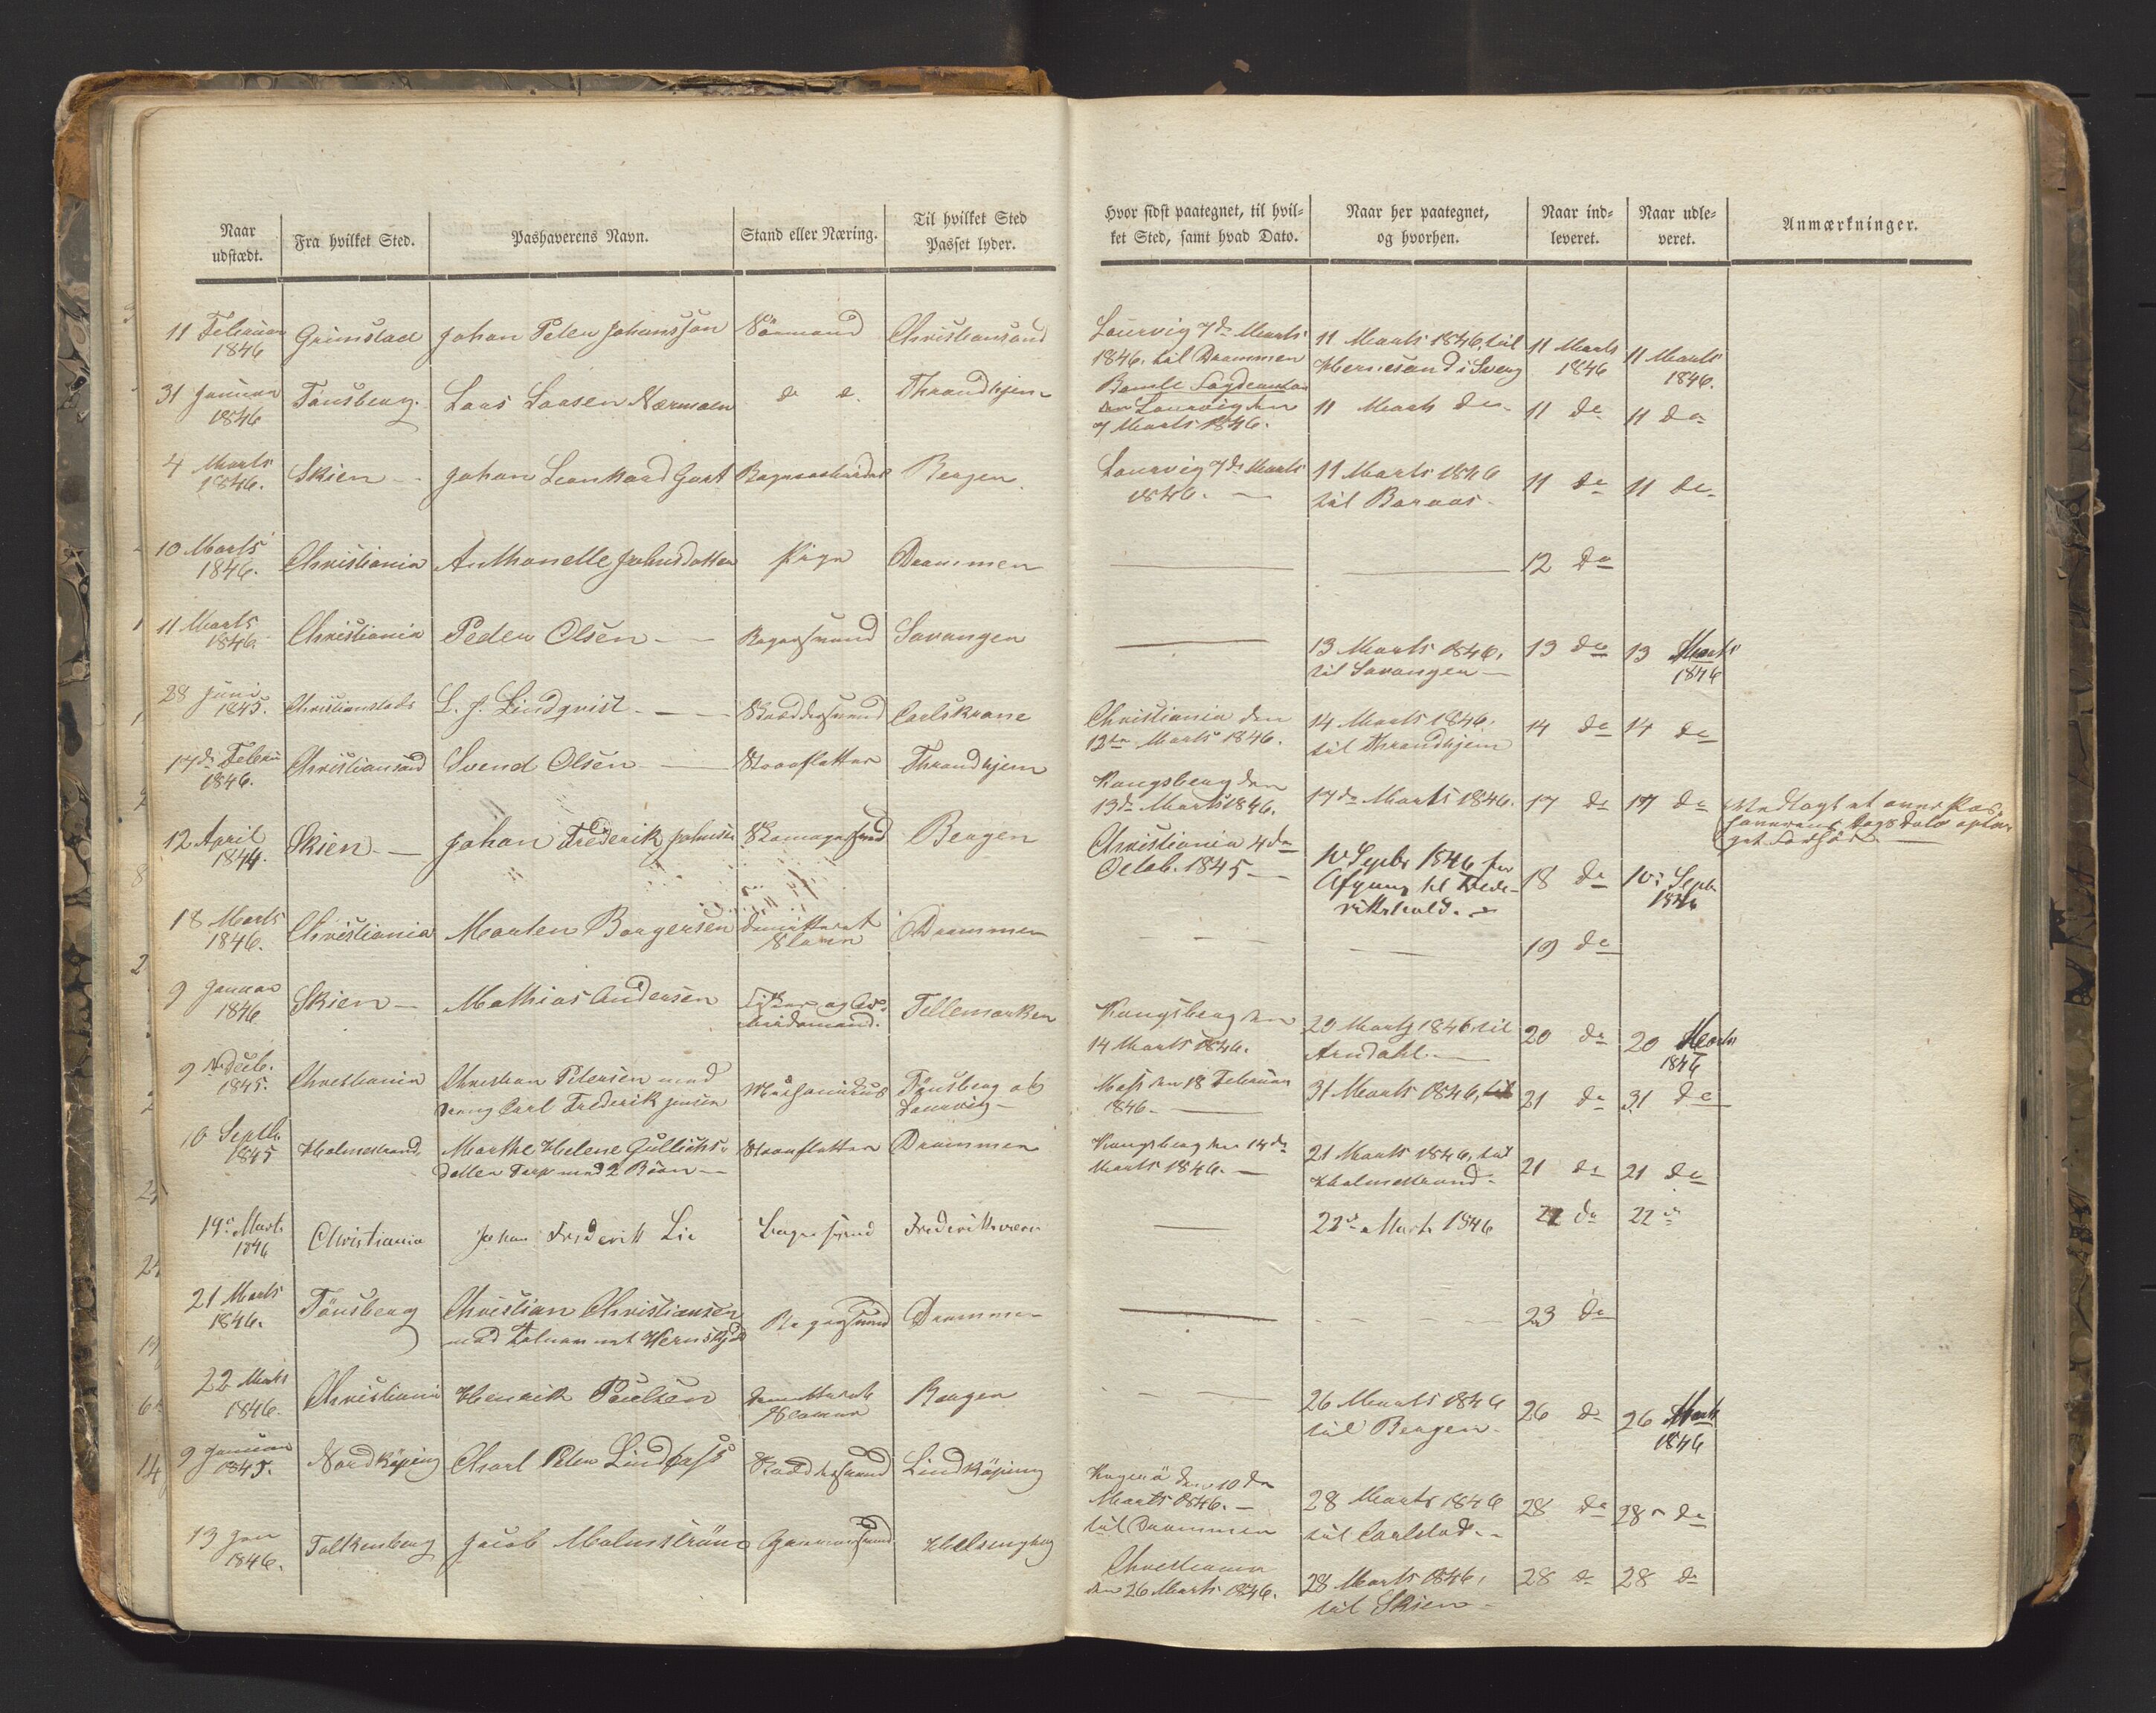 Naar udstædt.
Fra hvilket Sted.
Pashaverens Navn.
Stand eller Næring.
Til hvilket Sted Passet lyder.
Hvor sidst paategnet, til hvilket Sted, samt hvad Dato.
Naar her paategnet, og hvorhen.
Naar indleveret.
Naar udleveret.
Anmærkninger.
11 Februar 1846 Grimstad Johan Peter Johansson Sömand Christiansand
Laurvig 7de Marts 1846. til Drammen 11 Marts 1846, til Hernesand i Sverg 11 Marts 1846 11 Marts 1846.
31 Januar 1846 Tönsberg. Lars Larsen Nærmoen do do. Throndhjem
Bamle Fogderi Laurvig den 7 Marts 1846. 11 Marts do 11 do 11 do
4 Marts 1846. Skien Johan Leonhard Bergen.
Laurvig 7de Marts 1846. 11 Marts 1846 til 11 do 11 do
10 Marts 1846. Christiania Anthonelle Johnsdatter Pige Drammen
12 do
11 Marts 1846. Christiania Peder Olsen Bagersvend Lavangen
13 Marts 1846, til Lavangen 13 do 13 Marts 1846
28 Juni 1845. Christianstads L. J. Lindqvist Skræddersvend Carlskrone
Christiania den 12te Marts 1846. 14 Marts 1846. til Throndhjem 14 do 14 do
17de Februar 1846. Christiansand Svend Olsen Throndhjem
Kongsberg den 13de Marts 1846. 17de Marts 1846. 17 do 17 do
12 April 1844. Skien Johan Frederik Johnsen Skomagersvend Bergen
Christiania 4de Octob. 1845 10 Septbr 1846 for Afgang til Frederikshald. 18 do 10 Septr 1846
18 Marts 1846. Christiania Morten Borgersen dimitteret Slaven Drammen
19 do
9 Januar 1846 Skien Mathias Andersen Tellemarken
Kongsberg den 14 Marts 1846. 20 Marts 1846 til Arndahl. 20 do 20 Marts 1846
9 Decb. 1845. Christiania Christian Petersen med Dreng Carl Frederik Jensen Tönsberg og Laurvig
Moss den 18 Februar 1846. 31 Marts 1846, 21 do 31 do
10 Septb. 1845 Holmestrand Marthe Helene Gullichsdatter med 2 Börn Drammen
Kongsberg den 14de Marts 1846. 21 Marts 1846, til Holmestrand. 21 do 21 do
19 Marts 1846 Christiania Johan Frederik Lie Bagersvend Frederiksværn
22de Marts 1846 22 do 22 do
21 Marts 1846. Tönsberg Christian Christiansen med Bagersvend Drammen
23 do
22 Marts 1846. Christiania Henrik Poulsen dimitteret Slaven Bergen
26 Marts 1846 til Bergen. 26 do 26 Marts 1846
9 Januar 1845. Nordköping Charl Peter Lindfass Skræddersvend Lindköping
Kragerö den 10de Marts 1846. til Drammen 28 Marts 1846 til Carlstad. 28 do 28 do
13 Jan 1846. Falkenberg Jacob Malmström Garversvend Helsingborg
Christiania den 26 Marts 1846. 28 Marts 1846, til Skien 28 do 28 do